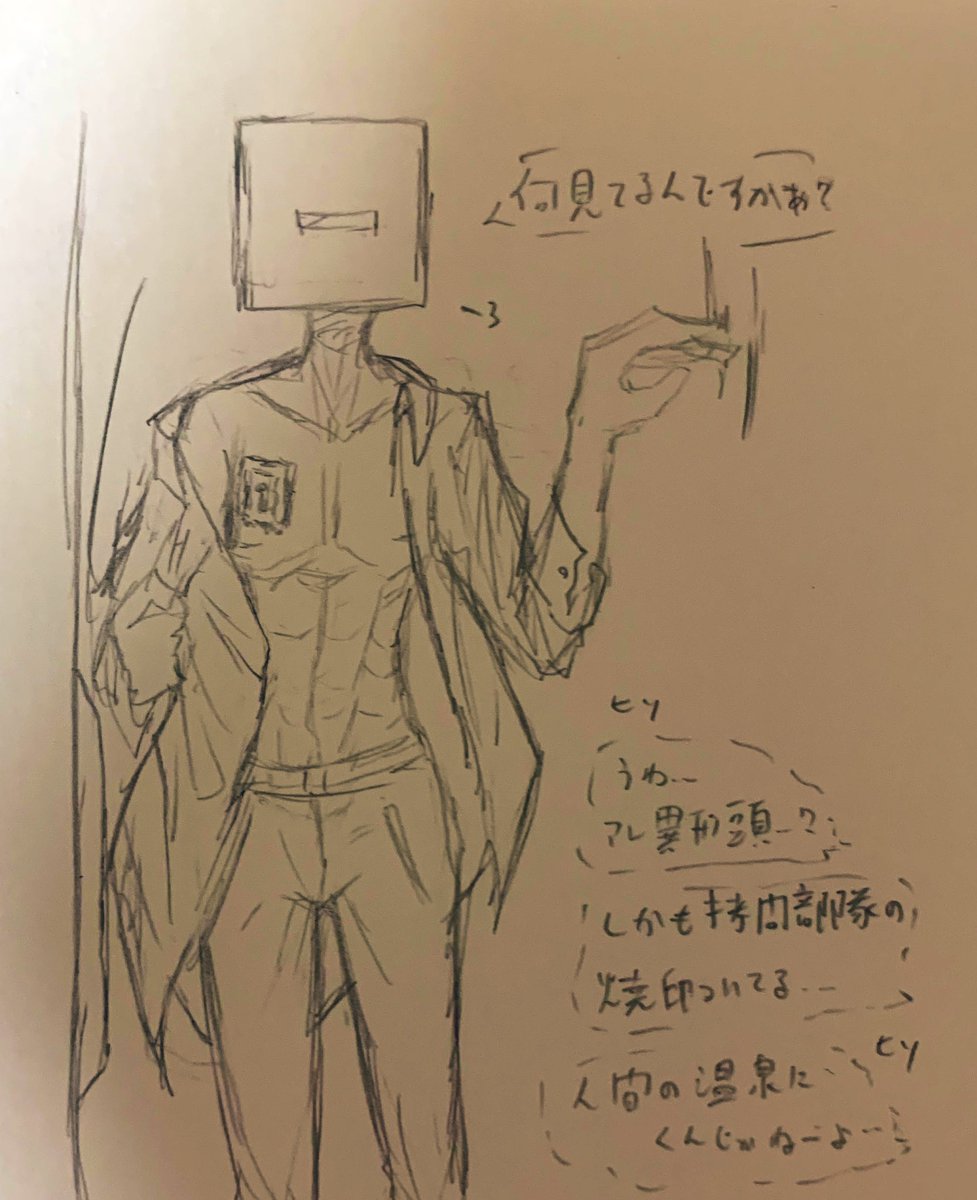 何見てるんですかぁ?
ヒソ
うわ…
アレ異形頭…?
しかも拷問部隊の
焼印ついてる…
ヒソ
人間の温泉に
くんじゃねーよ…